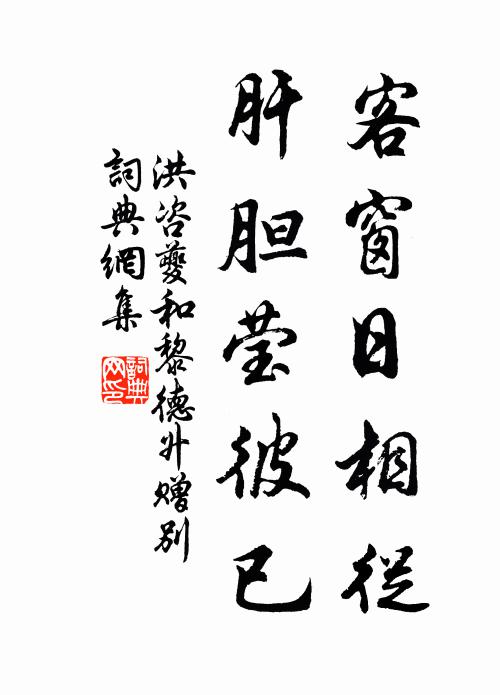 客窗日相從
肝胆莹彼已
洪咨夔和黎德升贈别
詞典網集
詞典网印